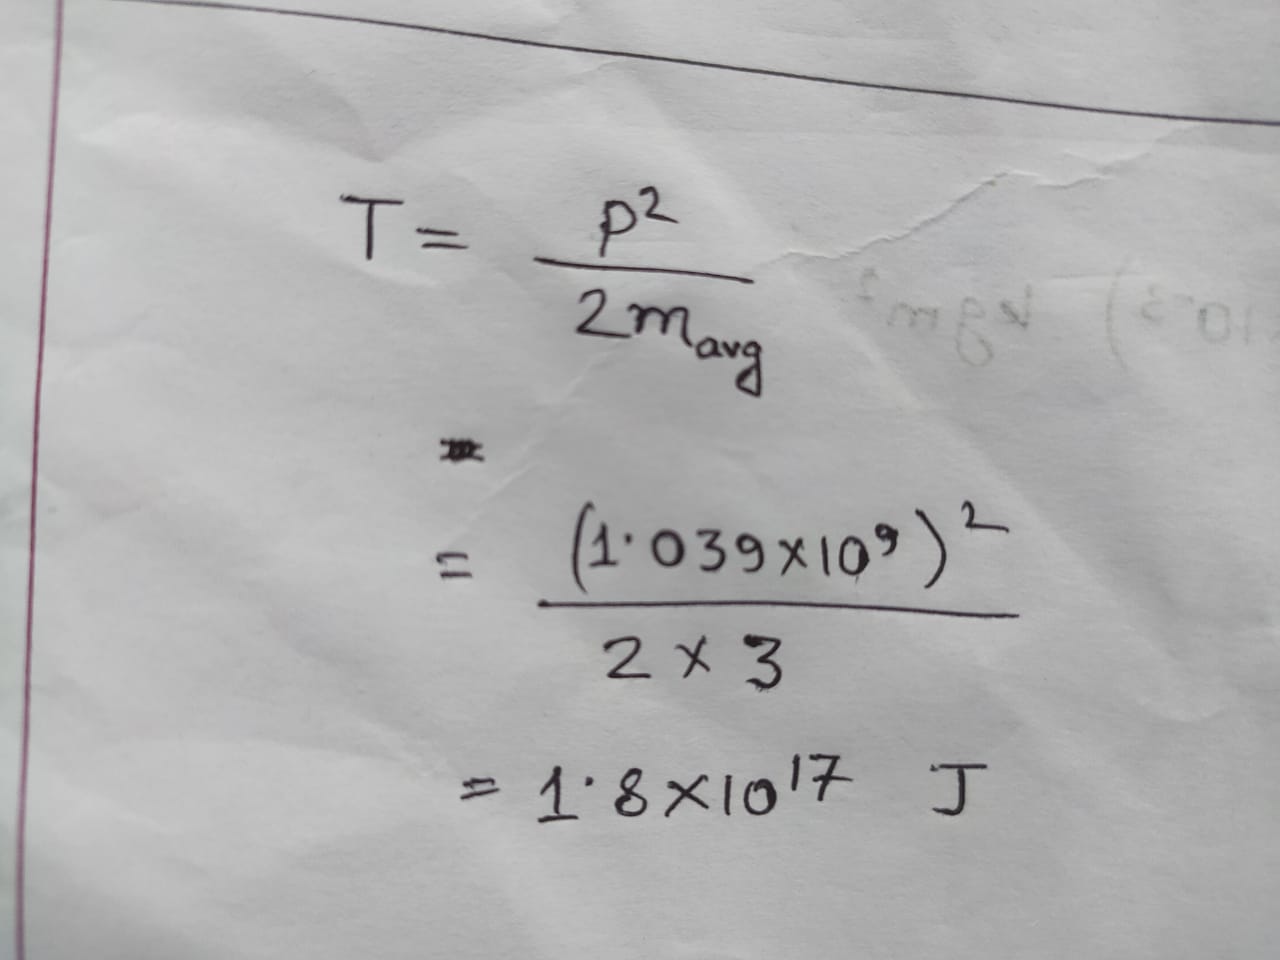 T = p²
2m_avg
= (1·039×10⁹)²
2 × 3
= 1·8×10¹⁷ J